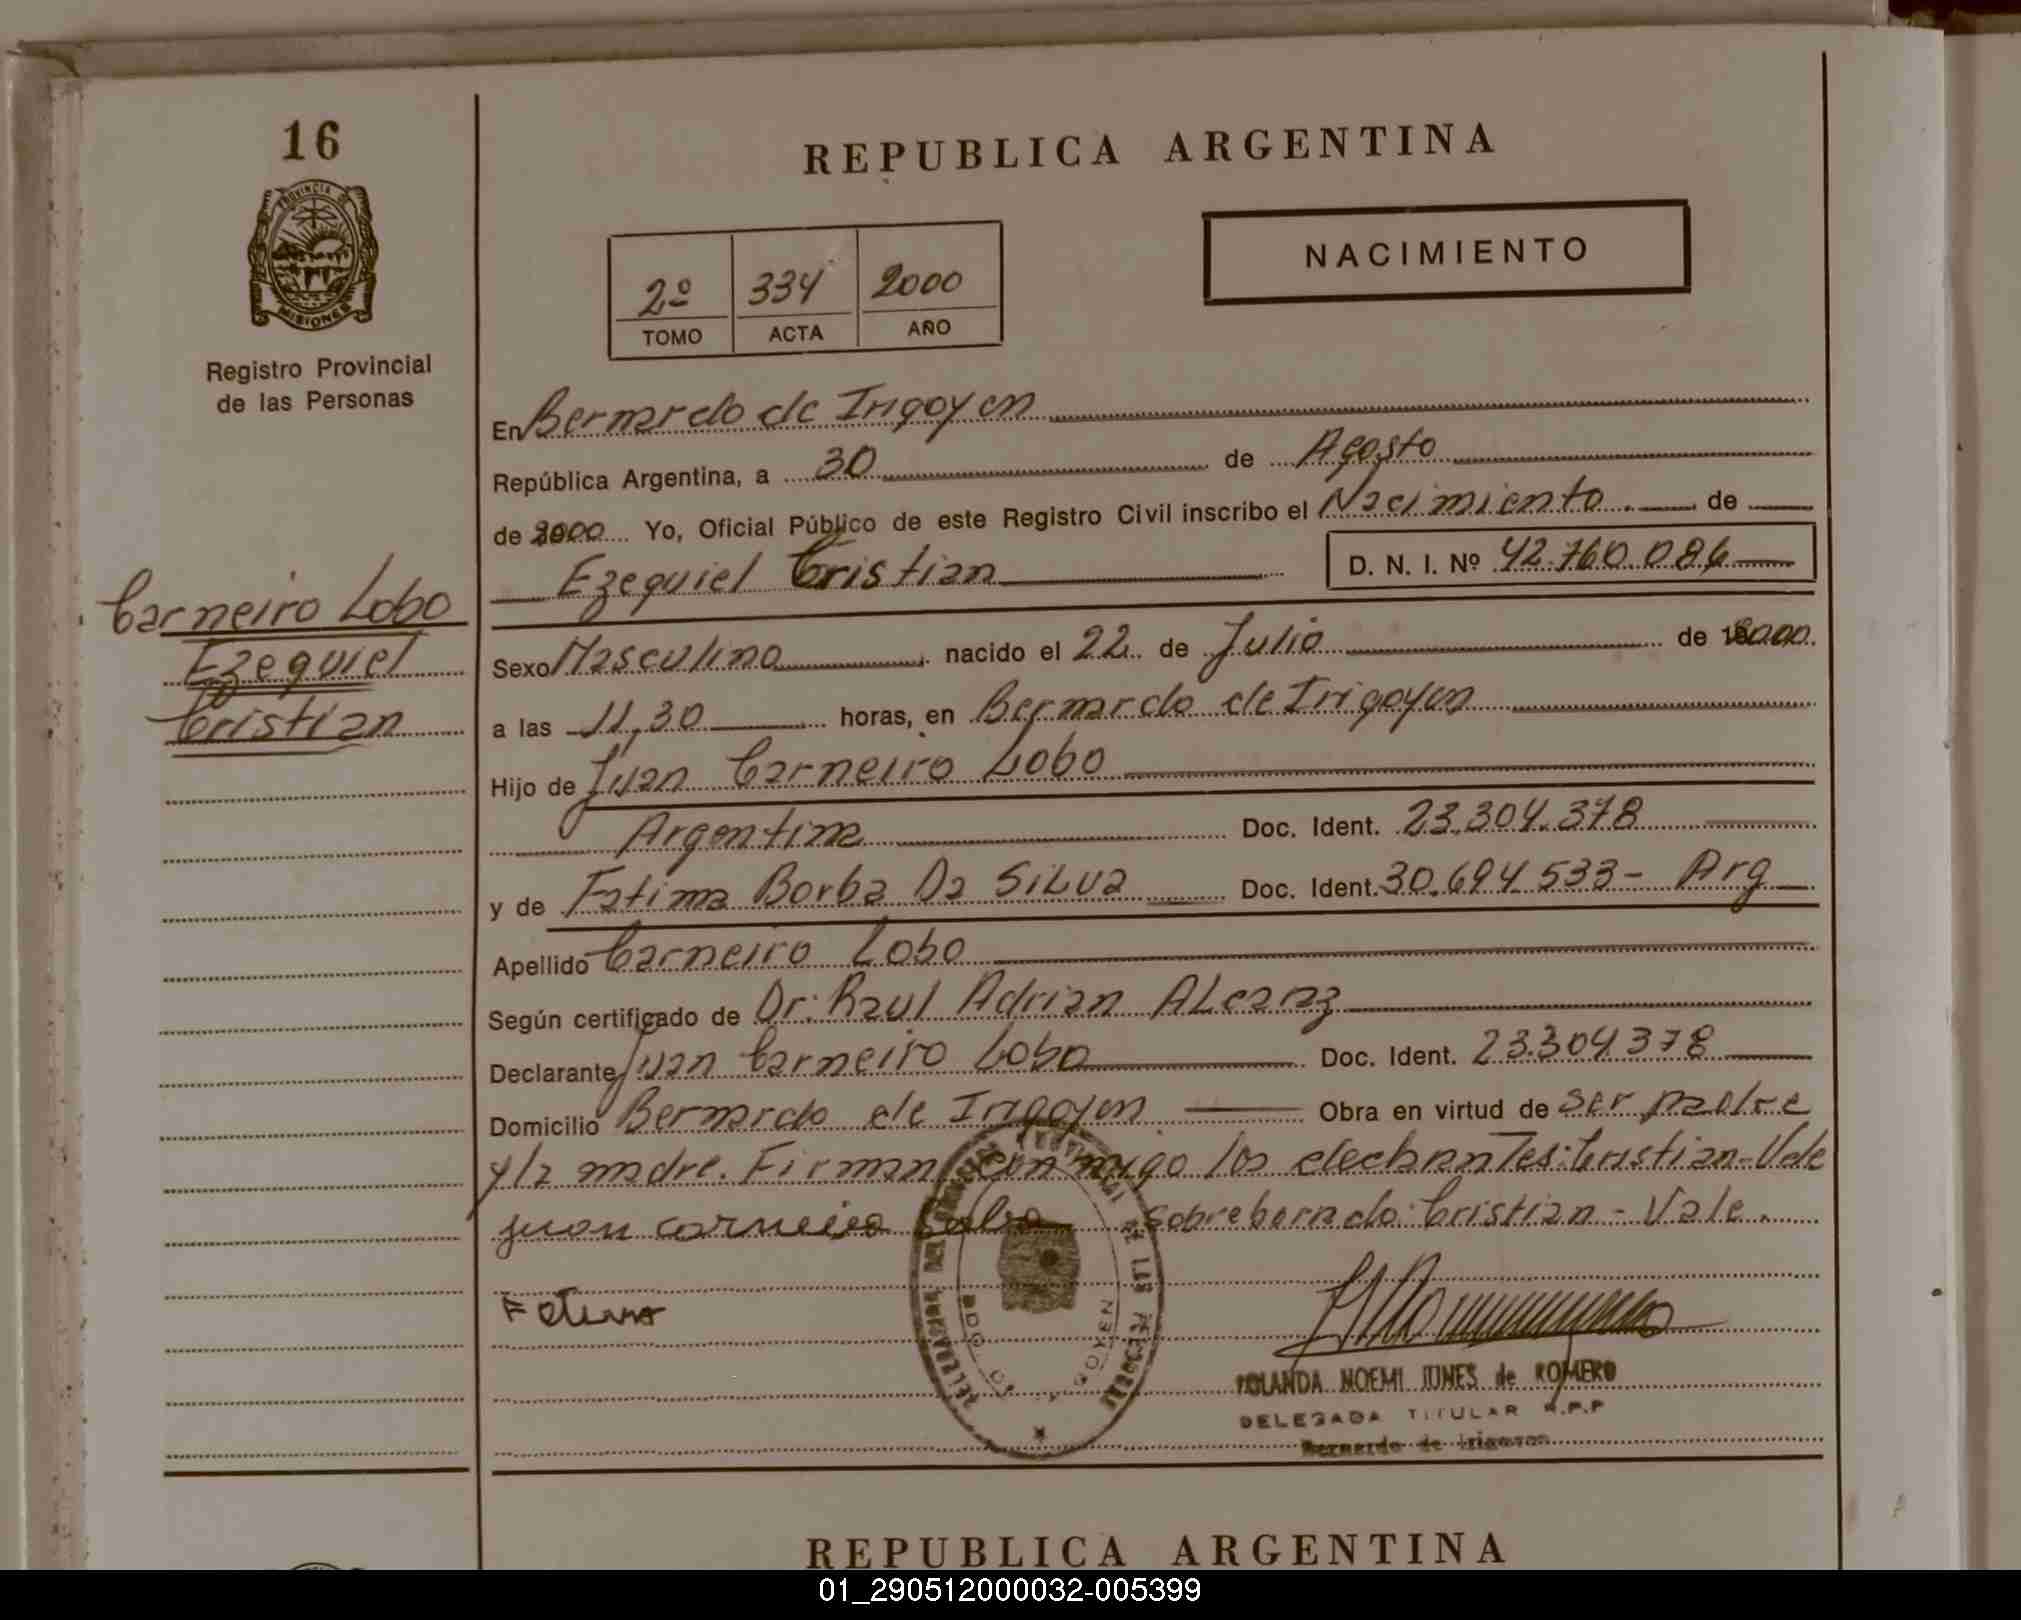 16
PROVINCIA DE
MISIONES
Registro Provincial
de las Personas
Carneiro Lobo
Ezequiel
Cristian
REPUBLICA ARGENTINA
NACIMIENTO
2º 334 2000
TOMO ACTA AÑO
En Bernardo de Irigoyen
República Argentina, a 30 de Agosto
de 2000 Yo, Oficial Público de este Registro Civil inscribo el Nacimiento de
Ezequiel Cristian D. N. I. Nº 42.760.086
Sexo Masculino nacido el 22 de Julio de 2000
a las 11,30 horas, en Bernardo de Irigoyen
Hijo de Juan Carneiro Lobo
Argentina Doc. Ident. 23.304.378
y de Fatima Borba Da Silva Doc. Ident. 30.694.533- Arg
Apellido Carneiro Lobo
Según certificado de Dr: Raul Adrian Alcaraz
Declarante Juan Carneiro Lobo Doc. Ident. 23.304.378
Domicilio Bernardo de Irigoyen Obra en virtud de ser padre
y la madre. Firman conmigo los declarantes: Cristian-Vale
juan carneiro lobo Sobreborrado: Cristian - Vale.
Fatima
YOLANDA NOEMI NUNES de ROMERO
DELEGADA TITULAR R.P.P
Bernardo de Irigoyen
REPUBLICA ARGENTINA
01_290512000032-005399